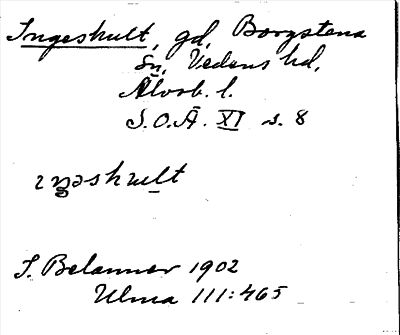 Ingeshult, gd, Borgstena
Sn, Vedens hd,
Älvsb. l.
S.O.Ä. XI s. 8
ıŋəshult
S. Belanner 1902
Ulma 111:465